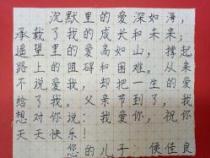 沉默里的爱深如海，
承载了我的成长和未来；
遥望里的爱高如山，撑起
路上的阻碍和困难。从来
不说爱我，却把一生的爱
给了我。父亲节到了，我
想对你说：我爱你，祝你
天天快乐！
您的儿子：侯佳良